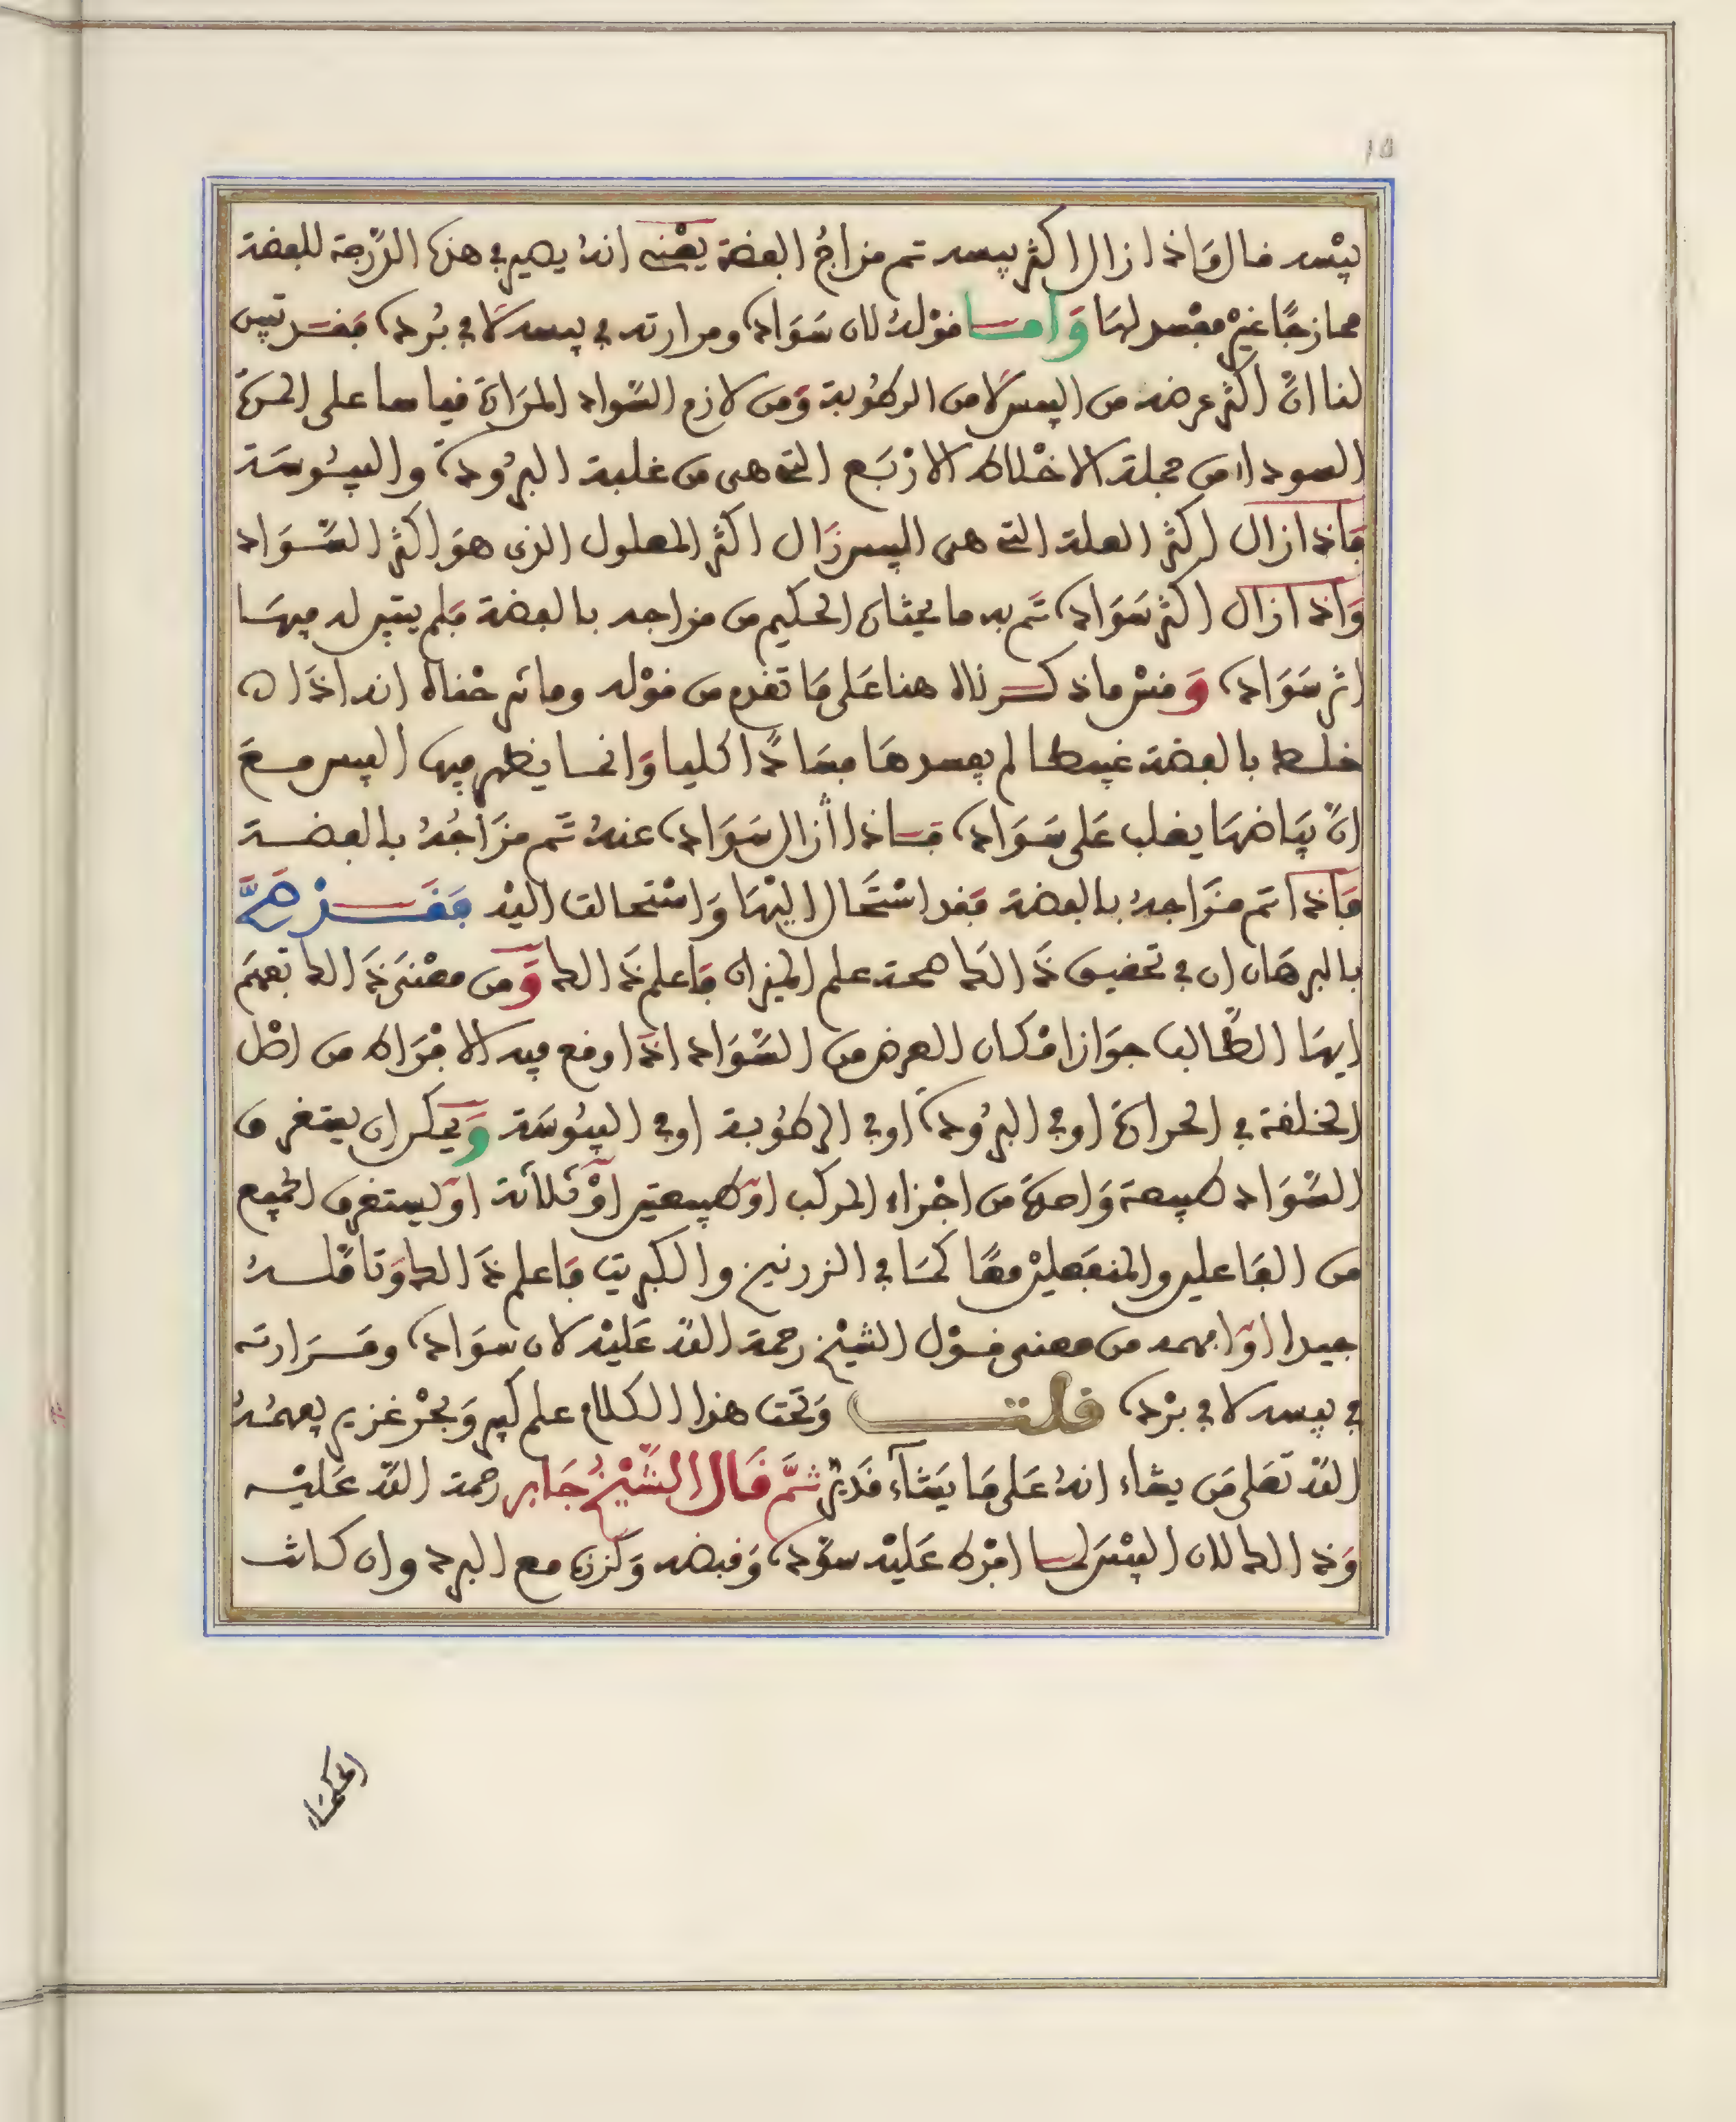 يبسه قال وَاذا زال اكثر يبسه تم مزاجُ الفضة يَعْنى انهُ يصير في هذه الدّرجة للفضة
ممازجًا غيْر مفْسد لهَا وَامــا قوْلهُ لان سَوَاده ومرارته في يبسه لَا في بُرده فقــد تبين
لنا انّ اكثر عرضه من اليبس لَا من الرطُوبة وَمن لازم السّواد المرَارة قياسا على المرة
السوداء من جملة الاخْلاط الارْبَع التي هى من غلبة البرُودة واليبُوسَة
فَاذا زال اكثر العلة التي هى اليبس زَال اكثر المعلول الذى هوَ اكثر السَّوَاد
وَاذا زال اكثر سَوَاده تَم به ما يحتاج الحكيم من مزاجه بالفضة فلم يتبين له فيهَا
اثر سَوَاده وَقسْ ما ذكــرناه هنا عَلى مَا تقدم من قوْله وما ثم خْفاك انه اذَا
خلــط بالفضة غبيطا لم يفسدهَا فسَادًا كليا وَانما يظهر فيها اليبس مــعَ
انّ بيَاضهَا يغلب عَلى سَوَاده فــاذا أزال سَوَاده عنهُ تَم مزَاجُهُ بالفضــة
فَاذا تم مزَاجهُ بالفضة فقد اسْتحَال اليْهَا وَاسْتحالت اليْه فقَــدْ صَحَّ
بالبرهَان ان في تحقيق ذَالك صحة علم الميزان فَاعلم ذَالك وَمن معْنىَ ذَالك تفهم
ايهَا الطّالب جوَاز امْكان العرض من السّوَاد اذَا وقع فيه الافْرَاط من اصْل
الخلقة في الحرارة اوفي البرُودة اوفي الرطُوبة اوفي اليبُوسَة وَيمكن ان يستغرق
السّوَاد طبيعة وَاحدة من اجْزاء المركب اوْ طبيعتين اوْ ثلاثة اوْ ليستغرق الجميع
من الفَاعلين والمنفعليْن معًا كمَا في الزرنيخ والكبريت فَاعلم ذَالك وَتامّلــهُ
جيدا اوْ افهمه من معنى قــوْل الشيْخ رحمة اللهَ عَليْه لان سوَاده ومَــرَارته
في يبسه لا في برْده قلــت وَتحت هذا الكلام علم كبير وَبحْر غزير يفهمُهُ
اللهَ تعَلى مَن يشاء انهُ عَلى مَا يَشَآء قَدير ثمَّ قَال الشّيْخُ جَابر رحمة اللهَ عَليْــه
وَذالك لان اليبْسَ لــما افْرط عَليْه سوّده وَقبضه وَكزنه مع البرد وان كــانت
الحكمَاء